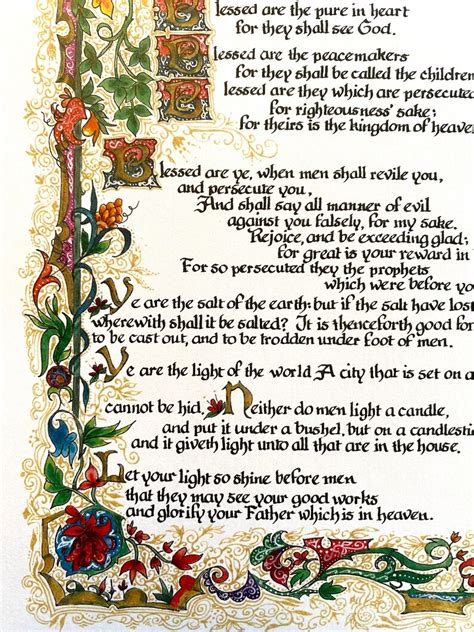 Blessed are the pure in heart
for they shall see God.
Blessed are the peacemakers
for they shall be called the children
Blessed are they which are persecuted
for righteousness' sake;
for theirs is the kingdom of heaven
Blessed are ye, when men shall revile you,
and persecute you,
And shall say all manner of evil
against you falsely, for my sake.
Rejoice, and be exceeding glad;
for great is your reward in
For so persecuted they the prophets
which were before yo
Ye are the salt of the earth: but if the salt have lost
wherewith shall it be salted? It is thenceforth good for
to be cast out, and to be trodden under foot of men.
Ye are the light of the world A city that is set on a
cannot be hid. Neither do men light a candle,
and put it under a bushel, but on a candlestic
and it giveth light unto all that are in the house.
Let your light so shine before men
that they may see your good works
and glorify your Father which is in heaven.